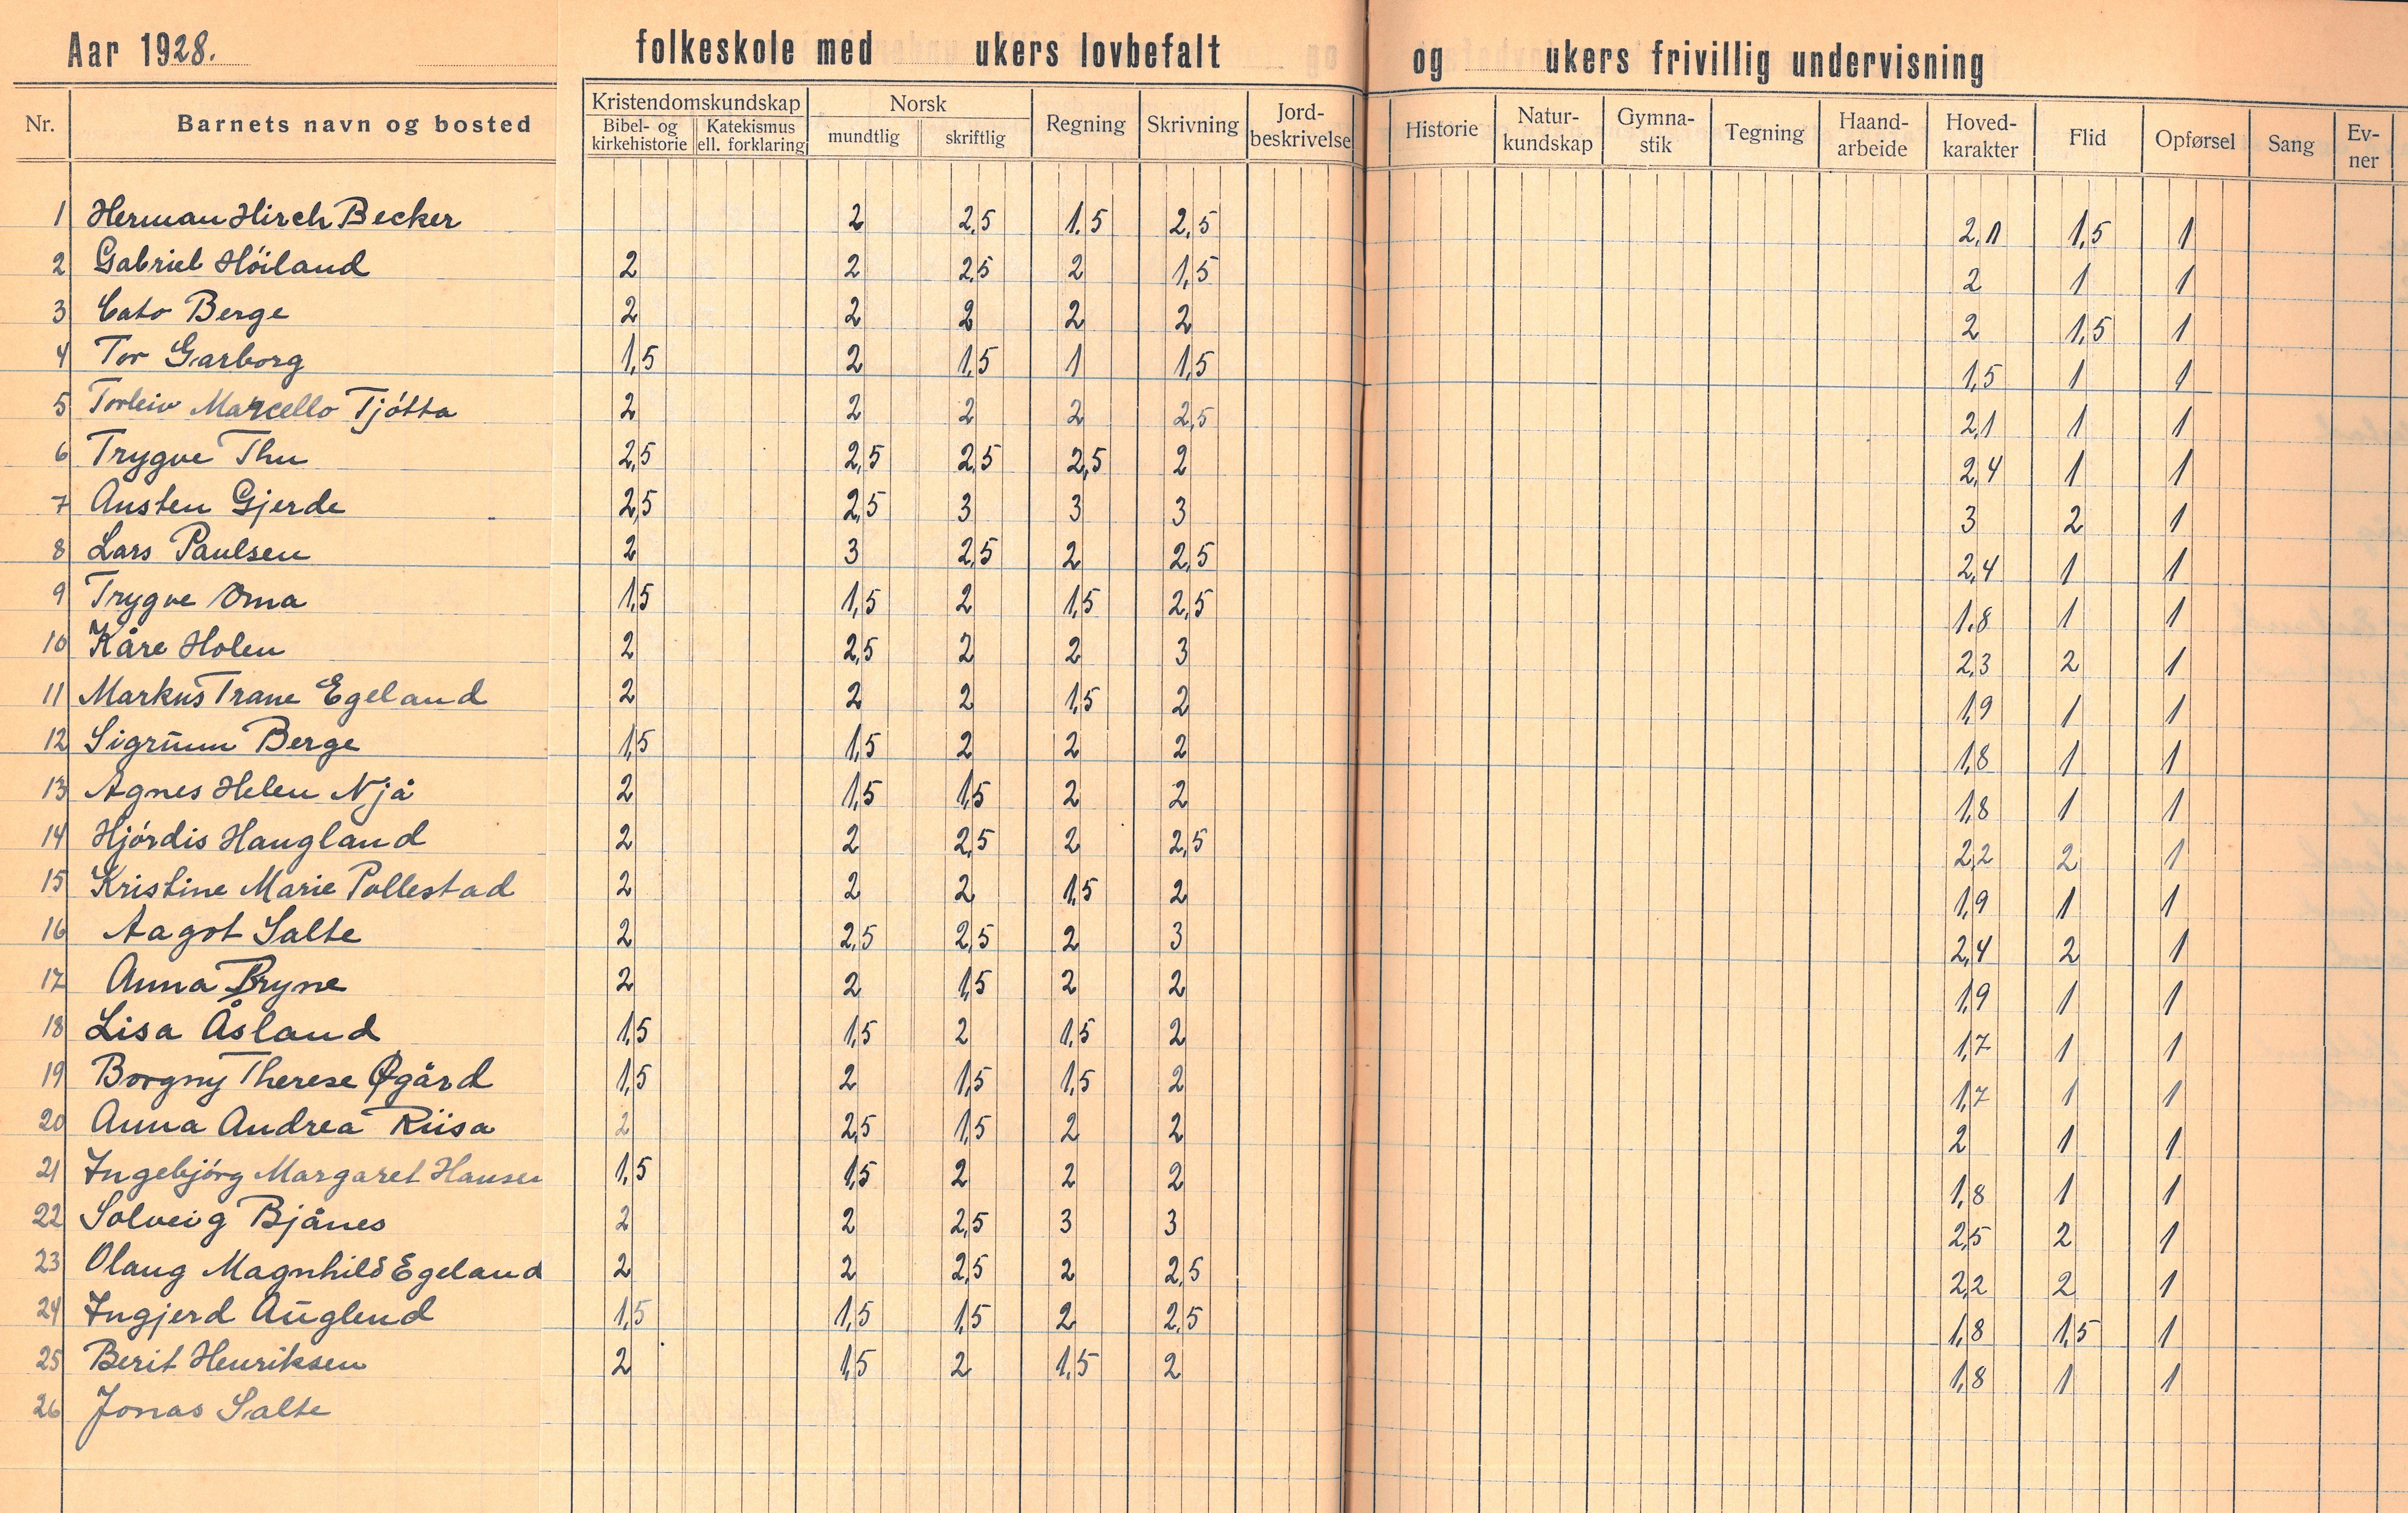 Aar 1928. folkeskole med ukers lovbefalt og ukers frivillig undervisning
Nr. Barnets navn og bosted Kristendomskundskap Bibel- og kirkehistorie Katekismus ell. forklaring Norsk mundtlig skriftlig Regning Skrivning Jord-beskrivelse Historie Natur-kundskap Gymna-stik Tegning Haand-arbeide Hoved-karakter Flid Opførsel Sang Ev-ner
1 Herman Hirch Becker 2 2,5 1,5 2,5 2,1 1,5 1
2 Gabriel Höiland 2 2 2,5 2 1,5 2 1 1
3 Cato Berge 2 2 2 2 2 2 1,5 1
4 Tor Garborg 1,5 2 1,5 1 1,5 1,5 1 1
5 Torleiv Marcello Tjötta 2 2 2 2 2,5 2,1 1 1
6 Trygve Thu 2,5 2,5 2,5 2,5 2 2,4 1 1
7 Austen Gjerde 2,5 2,5 3 3 3 3 2 1
8 Lars Paulsen 2 3 2,5 2 2,5 2,4 1 1
9 Trygve Oma 1,5 1,5 2 1,5 2,5 1,8 1 1
10 Kåre Holen 2 2,5 2 2 3 2,3 2 1
11 Markus Trane Egeland 2 2 2 1,5 2 1,9 1 1
12 Sigrunn Berge 1,5 1,5 2 2 2 1,8 1 1
13 Agnes Helen Njå 2 1,5 1,5 2 2 1,8 1 1
14 Hjördis Haugland 2 2 2,5 2 2,5 2,2 2 1
15 Kristine Marie Pollestad 2 2 2 1,5 2 1,9 1 1
16 Aagot Salte 2 2,5 2,5 2 3 2,4 2 1
17 Anna Bryne 2 2 1,5 2 2 1,9 1 1
18 Lisa Åsland 1,5 1,5 2 1,5 2 1,7 1 1
19 Borgny Therese Øgård 1,5 2 1,5 1,5 2 1,7 1 1
20 Anna Andrea Riisa 2 2,5 1,5 2 2 2 1 1
21 Ingebjörg Margaret Hansen 1,5 1,5 2 2 2 1,8 1 1
22 Solveig Bjånes 2 2 2,5 3 3 2,5 2 1
23 Olaug Magnhild Egeland 2 2 2,5 2 2,5 2,2 2 1
24 Ingjerd Auglend 1,5 1,5 1,5 2 2,5 1,8 1,5 1
25 Berit Henriksen 2 1,5 2 1,5 2 1,8 1 1
26 Jonas Salte